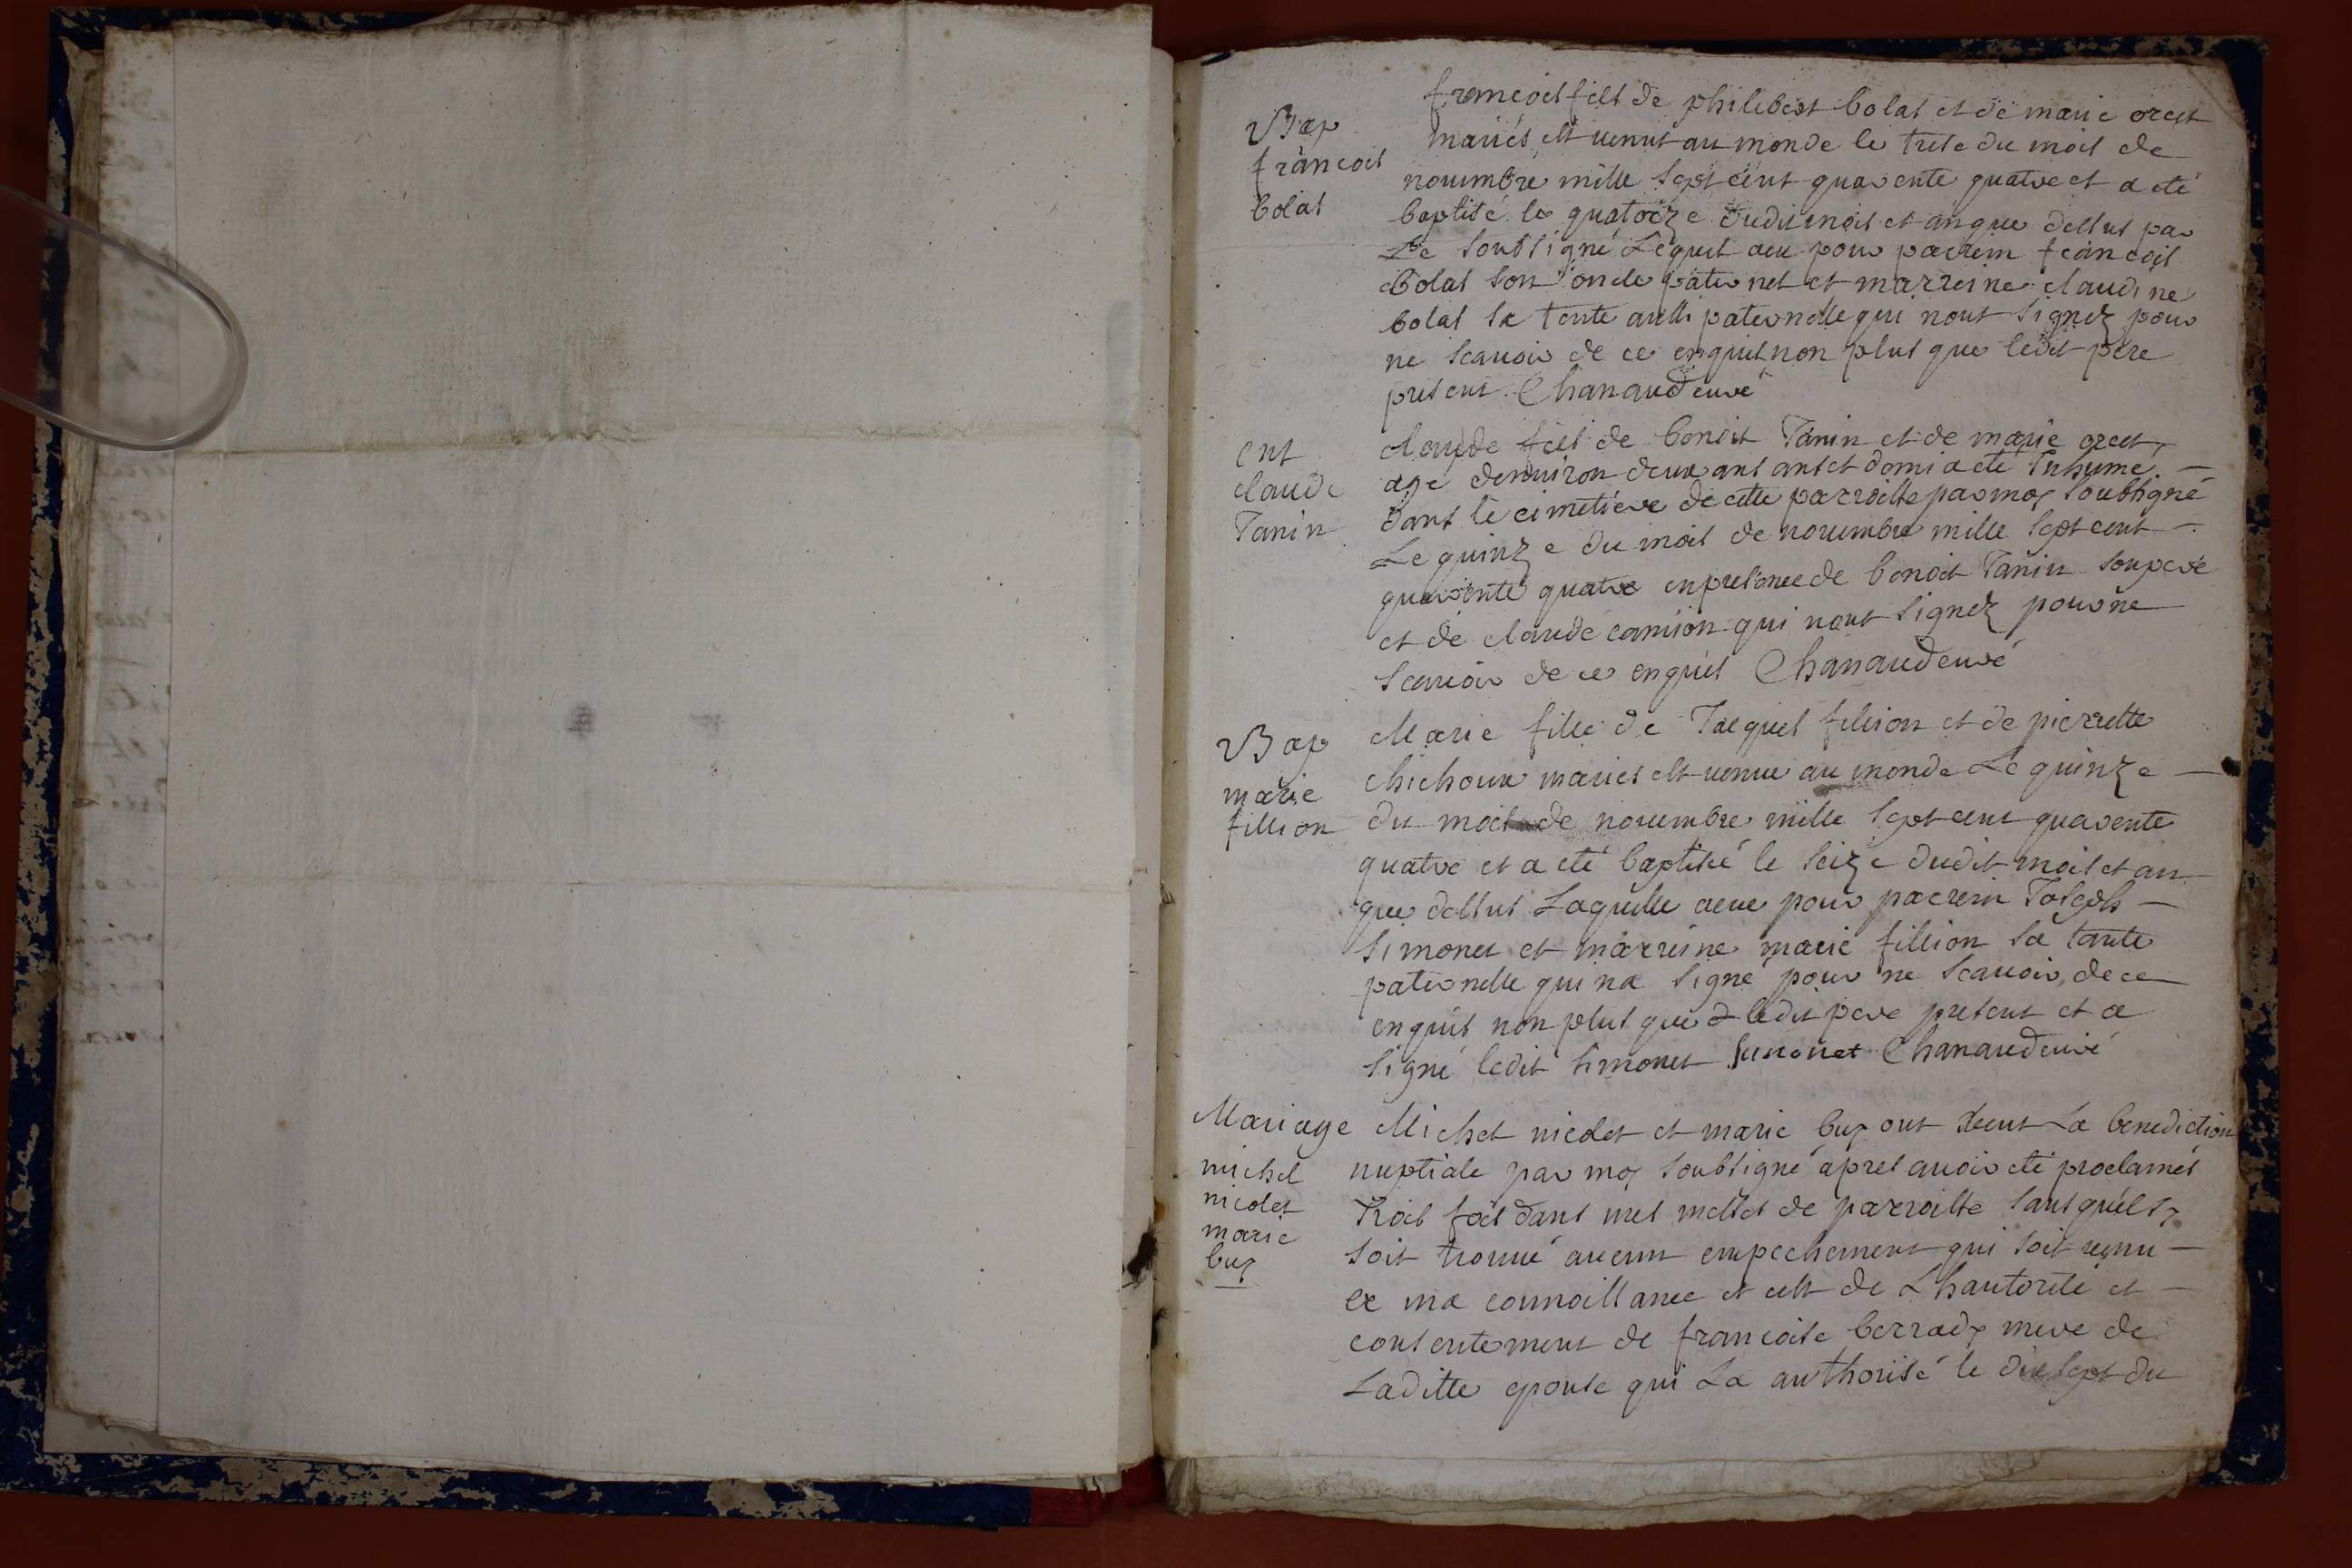 Bap
francois
bolas
francois fils de philibert bolas et de marie orest
mariés est venut au monde le trese du mois de
nouembre mille sept cent quarente quatre et a eté
baptisé le quatorze dudit mois et an que dessus par
Le soubsigné Lequel aeu pour parrein francois
bolas son oncle paternel et marreine claudine
bolas sa tente aussi paternelle qui nont signez pour
ne scauoir de ce enquis non plus que ledit pere
present Chanaud curé
ent
claude
Tanin
claude fils de benoit Tanin et de marie orest,
agé denuiron deux ans ans et domi a eté Inhumé
dans le cimetiere de cette parroisse par moy soubsigné
Le quinze du mois de nouembre mille sept cent
quarente quatre en presence de benoit Tanin son pere
et de claude camion qui nont signez pour ne
scauoir de ce enquis Chanaud curé
Bap
marie
fillion
Marie fille de Jacques fillion et de pierrette
chichoux mariés est venue au monde Le quinze
du mois de nouembre mille sept cent quarente
quatre et a eté baptisé le seize dudit mois et an
que dessus Laquelle aeue pour parrein Joseph
simonet et marreine marie fillion sa tante
paternelle qui na signé pour ne scauoir de ce
enquis non plus que ledit pere present et a
signé ledit simonet Simonet Chanaud curé
Mariage
michel
nicolet
marie
buy
Michel nicolet et marie buy ont recut La benediction
nuptiale par moy soubsigné apres auoir eté proclamés
Trois fois dans mes messes de parroisse sans quils y
soit trouué aucun empechement qui soit venu
a ma connoissance et cest de Lhautorité et
consentement de francoise berrady mere de
Laditte epouse qui La authorisé le dix sept du